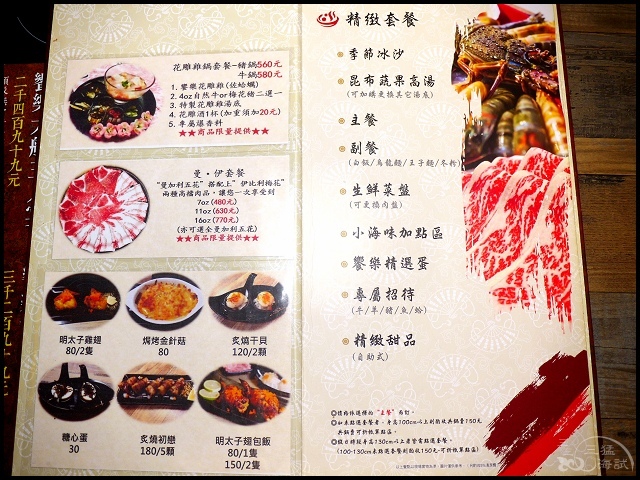 花雕雞鍋套餐-豬鍋560元
牛鍋580元
1. 饗樂花雕雞(佐蛤蠣)
2. 4oz自然牛or梅花豬二選一
3. 特製花雕雞湯底
4. 花雕酒1杯(加重須加20元)
5. 專屬爆香料
★★商品限量提供★★
曼·伊套餐
"曼加利五花"搭配上"伊比利梅花"
兩種高檔肉品,讓您一次享受到
7oz (480元)
11oz (630元)
16oz (770元)
(亦可選全曼加利五花)
★★商品限量提供★★
明太子雞翅
80/2隻
焗烤金針菇
80
炙燒干貝
120/2顆
糖心蛋
30
炙燒初戀
180/5顆
明太子翅包飯
80/1隻
150/2隻
精緻套餐
季節冰沙
昆布蔬果高湯
(可加購更換其它湯底)
主餐
副餐
(白飯/烏龍麵/王子麵/冬粉)
生鮮菜盤
(可更換肉盤)
小海味加點區
饗樂精選蛋
專屬招待
(牛/羊/豬/魚/蛤)
精緻甜品
(自助式)
二千四百九十九元
三猛
海試